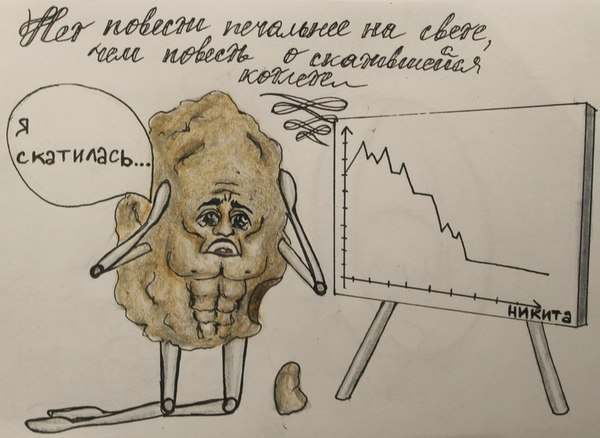 Нет повести печальнее на свете,
чем повесть о скатившейся
котлете
Я
скатилась...
никита